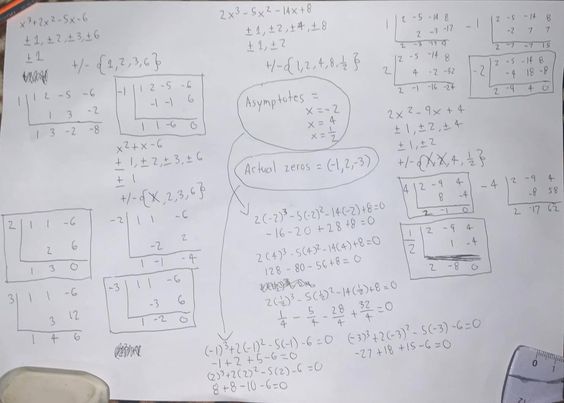 x³+2x²-5x-6
±1, ±2, ±3, ±6
±1
+/- {1,2,3,6}
1 | 1 2 -5 -6
1 3 -2
1 3 -2 -8
-1 | 1 2 -5 -6
-1 -1 6
1 1 -6 0
x²+x-6
±1, ±2, ±3, ±6
±1
+/- {X, 2,3,6}
2 | 1 1 -6
2 6
1 3 0
-2 | 1 1 -6
-2 2
1 -1 -4
3 | 1 1 -6
3 12
1 4 6
-3 | 1 1 -6
-3 6
1 -2 0
2x³-5x²-14x+8
±1, ±2, ±4, ±8
±1, ±2
+/- {1,2,4,8,½}
Asymptotes =
x=-2
x=4
x=½
Actual zeros = (-1,2,-3)
2(-2)³-5(-2)²-14(-2)+8=0
-16-20+28+8=0
2(4)³-5(4)²-14(4)+8=0
128-80-56+8=0
2(½)³-5(½)²-14(½)+8=0
1/4 - 5/4 - 28/4 + 32/4 = 0
(-1)³+2(-1)²-5(-1)-6=0
-1+2+5-6=0
(2)³+2(2)²-5(2)-6=0
8+8-10-6=0
(-3)³+2(-3)²-5(-3)-6=0
-27+18+15-6=0
1 | 2 -5 -14 8
2 -3 -17
-1 | 2 -5 -14 8
-2 7 7
2 -7 -7 15
2 | 2 -5 -14 8
4 -2 -32
2 -1 -16 -24
-2 | 2 -5 -14 8
-4 18 -8
2 -9 4 0
2x²-9x+4
±1, ±2, ±4
±1, ±2
+/- {X, X, 4, ½}
4 | 2 -9 4
8 -4
2 -1 0
-4 | 2 -9 4
-8 58
2 17 62
1/2 | 2 -9 4
1 -4
2 -8 0